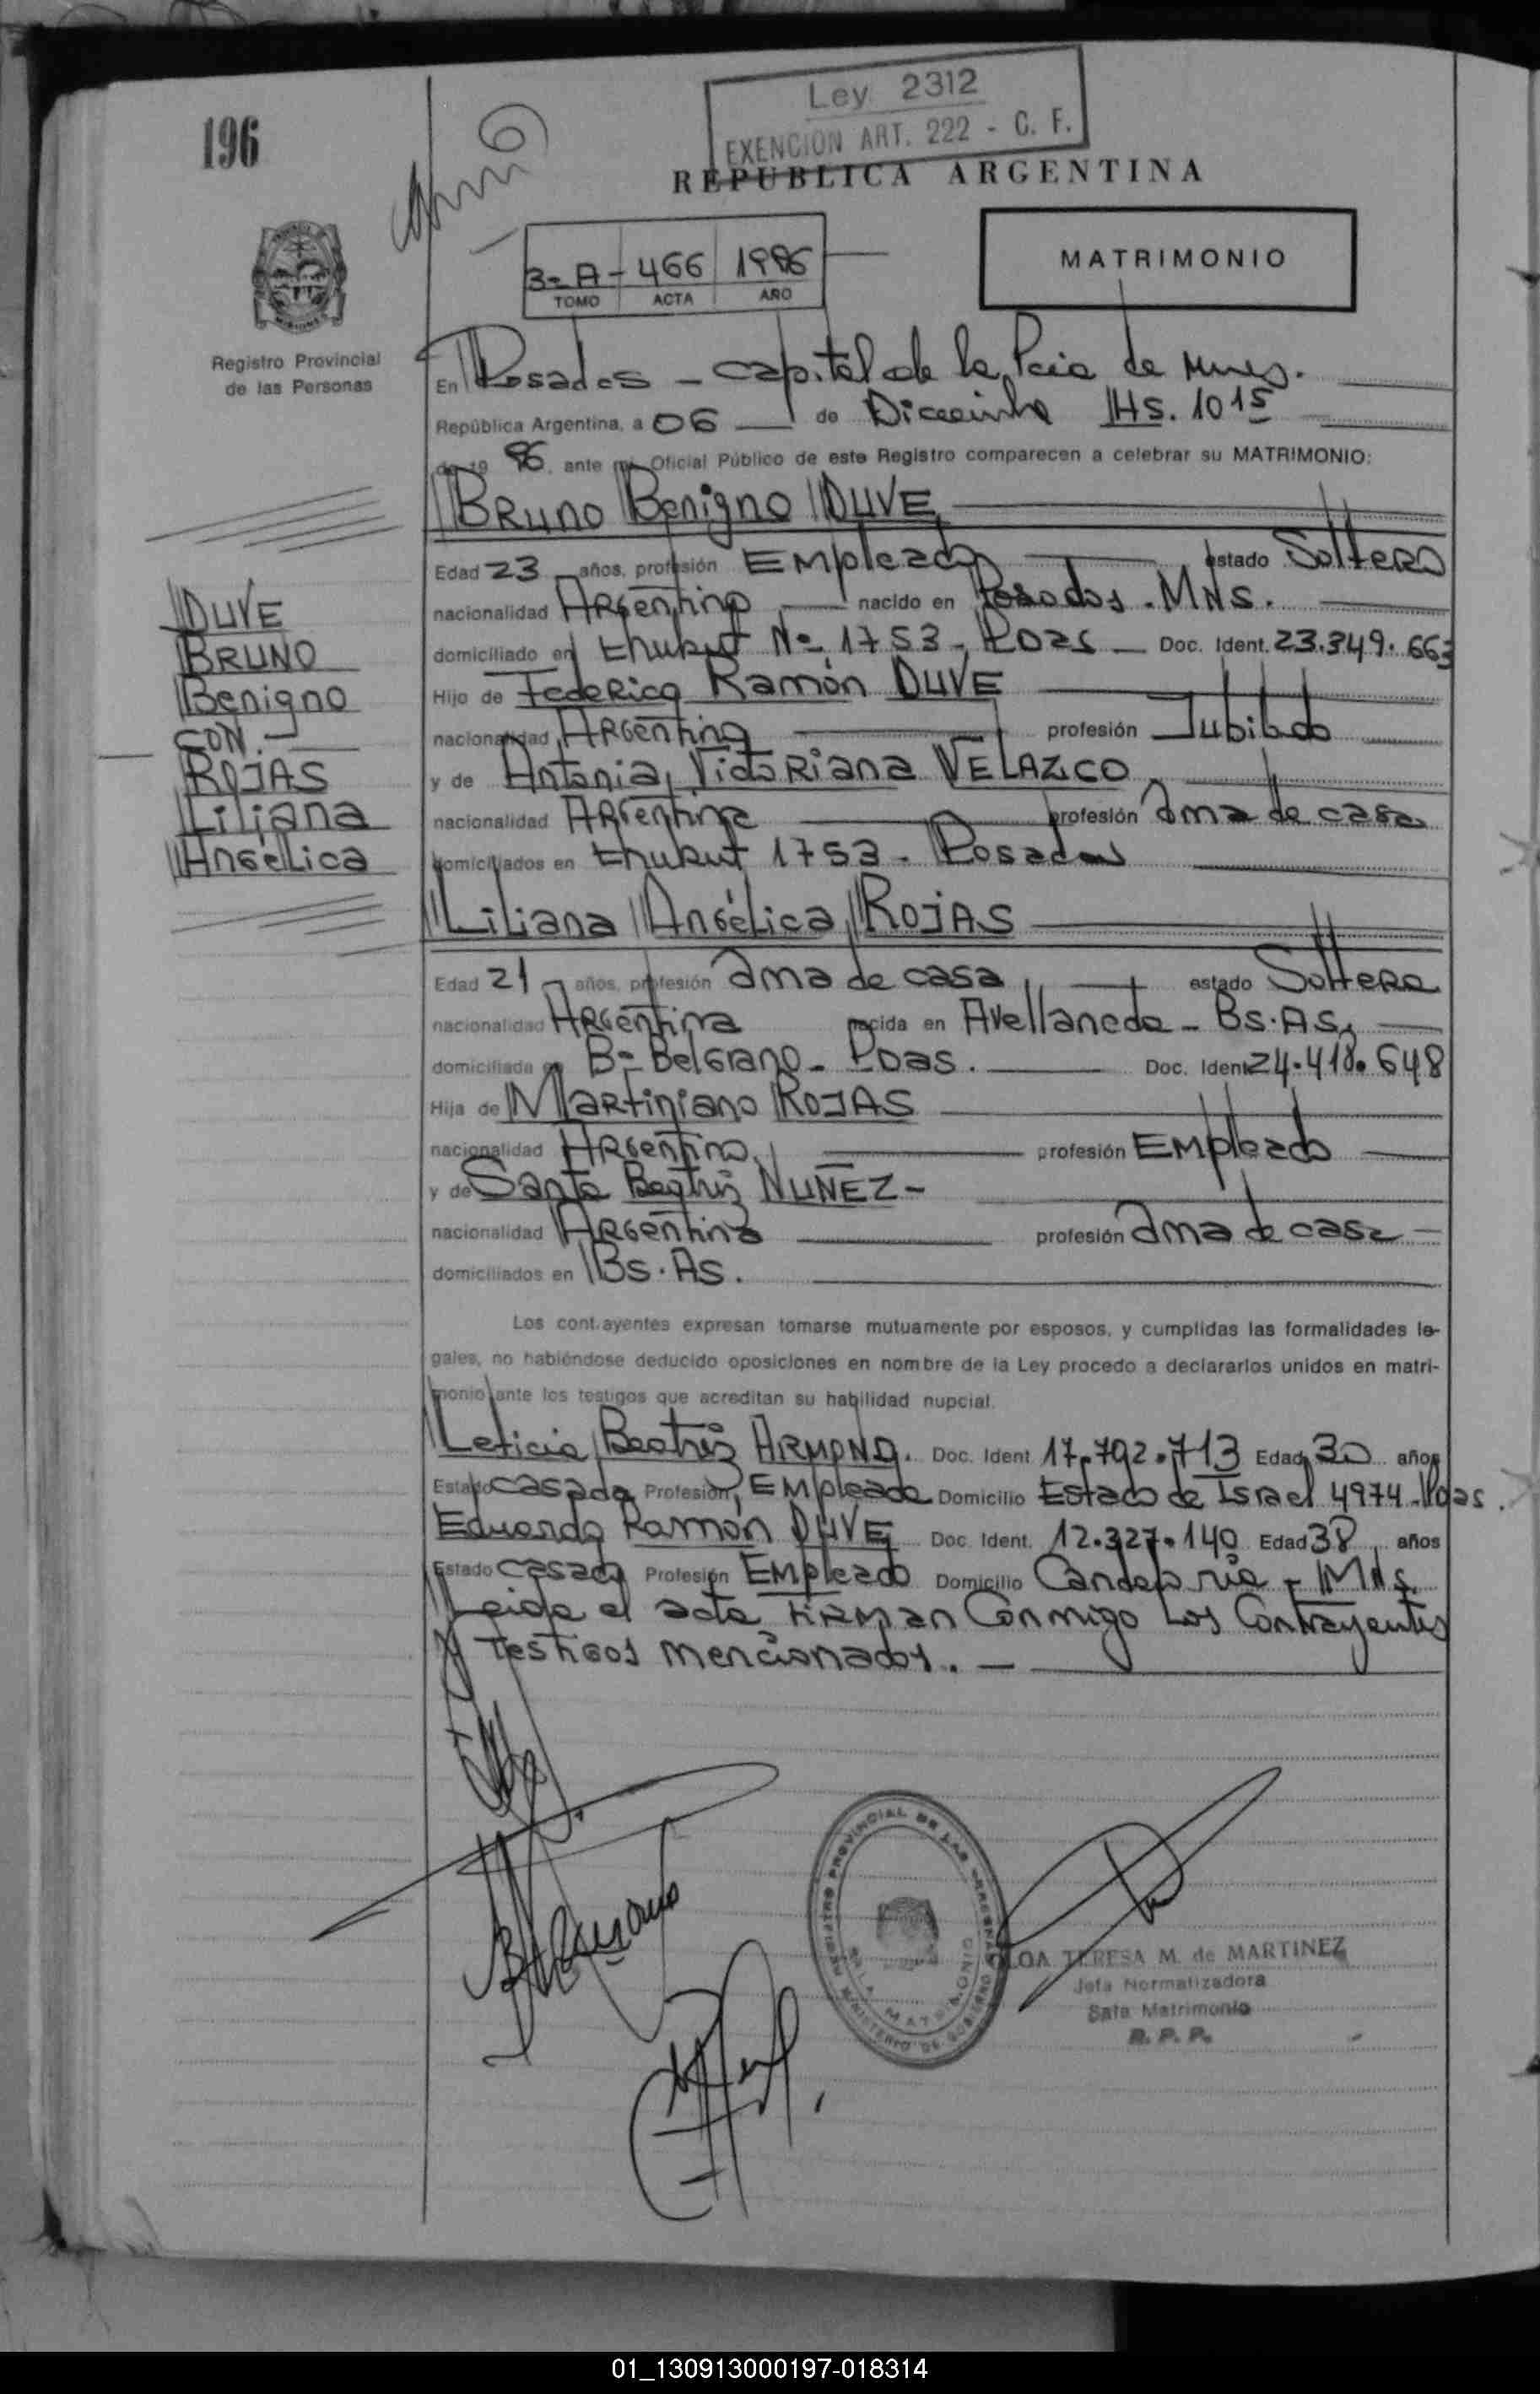 196
Ley 2312
EXENCION ART. 222 - C. F.
REPUBLICA ARGENTINA
3-A- 466 1996
TOMO ACTA AÑO
MATRIMONIO
Registro Provincial
de las Personas
En Posadas - capital de la Pcia de Mnes.
República Argentina, a 06 de Diciembre HS. 10 15
de 19 96, ante mi, Oficial Público de este Registro comparecen a celebrar su MATRIMONIO:
BRUNO Benigno DUVE
Edad 23 años, profesión EMpleado estado Soltero
nacionalidad Argentino nacido en Posadas - MNS.
domiciliado en Chubut Nº 1753 - Pdas - Doc. Ident. 23.349.663
Hijo de Federico Ramón DUVE
nacionalidad Argentina profesión Jubilado
y de Antonia Victoriana VELAZCO
nacionalidad Argentina profesión Ama de casa
domiciliados en Chubut 1753 - Posadas
DUVE
BRUNO
Benigno
CON.-
ROJAS
Liliana
Angélica
Liliana Angélica ROJAS
Edad 21 años, profesión Ama de casa estado Soltera
nacionalidad Argentina nacida en Avellaneda - Bs. As.
domiciliada en Bº Belgrano - Pdas. Doc. Ident 24.418.648
Hija de Martiniano ROJAS
nacionalidad Argentina profesión EMpleado
y de Santa Beatriz NUÑEZ-
nacionalidad Argentina profesión Ama de casa
domiciliados en Bs. As.
Los contrayentes expresan tomarse mutuamente por esposos, y cumplidas las formalidades le-
gales, no habiéndose deducido oposiciones en nombre de la Ley procedo a declararlos unidos en matri-
monio ante los testigos que acreditan su habilidad nupcial.
Leticia Beatriz Doc. Ident 17.792.713 Edad 30 años
Estado casada Profesión EMpleada Domicilio Estado de Israel 4974 - Pdas.
Eduardo Ramón DUVE Doc. Ident. 12.327.140 Edad 38 años
Estado casado Profesión EMpleado Domicilio Candelaria - MNS.
Leida el acta FIRMAN Conmigo Los Contrayentes
y Testigos mencionados. -
REGISTRO PROVINCIAL DE LAS PERSONAS
MINISTERIO DE GOBIERNO
SALA MATRIMONIO
OLGA TERESA M. de MARTINEZ
Jefa Normalizadora
Sala Matrimonio
R. P. P.
01_130913000197-018314